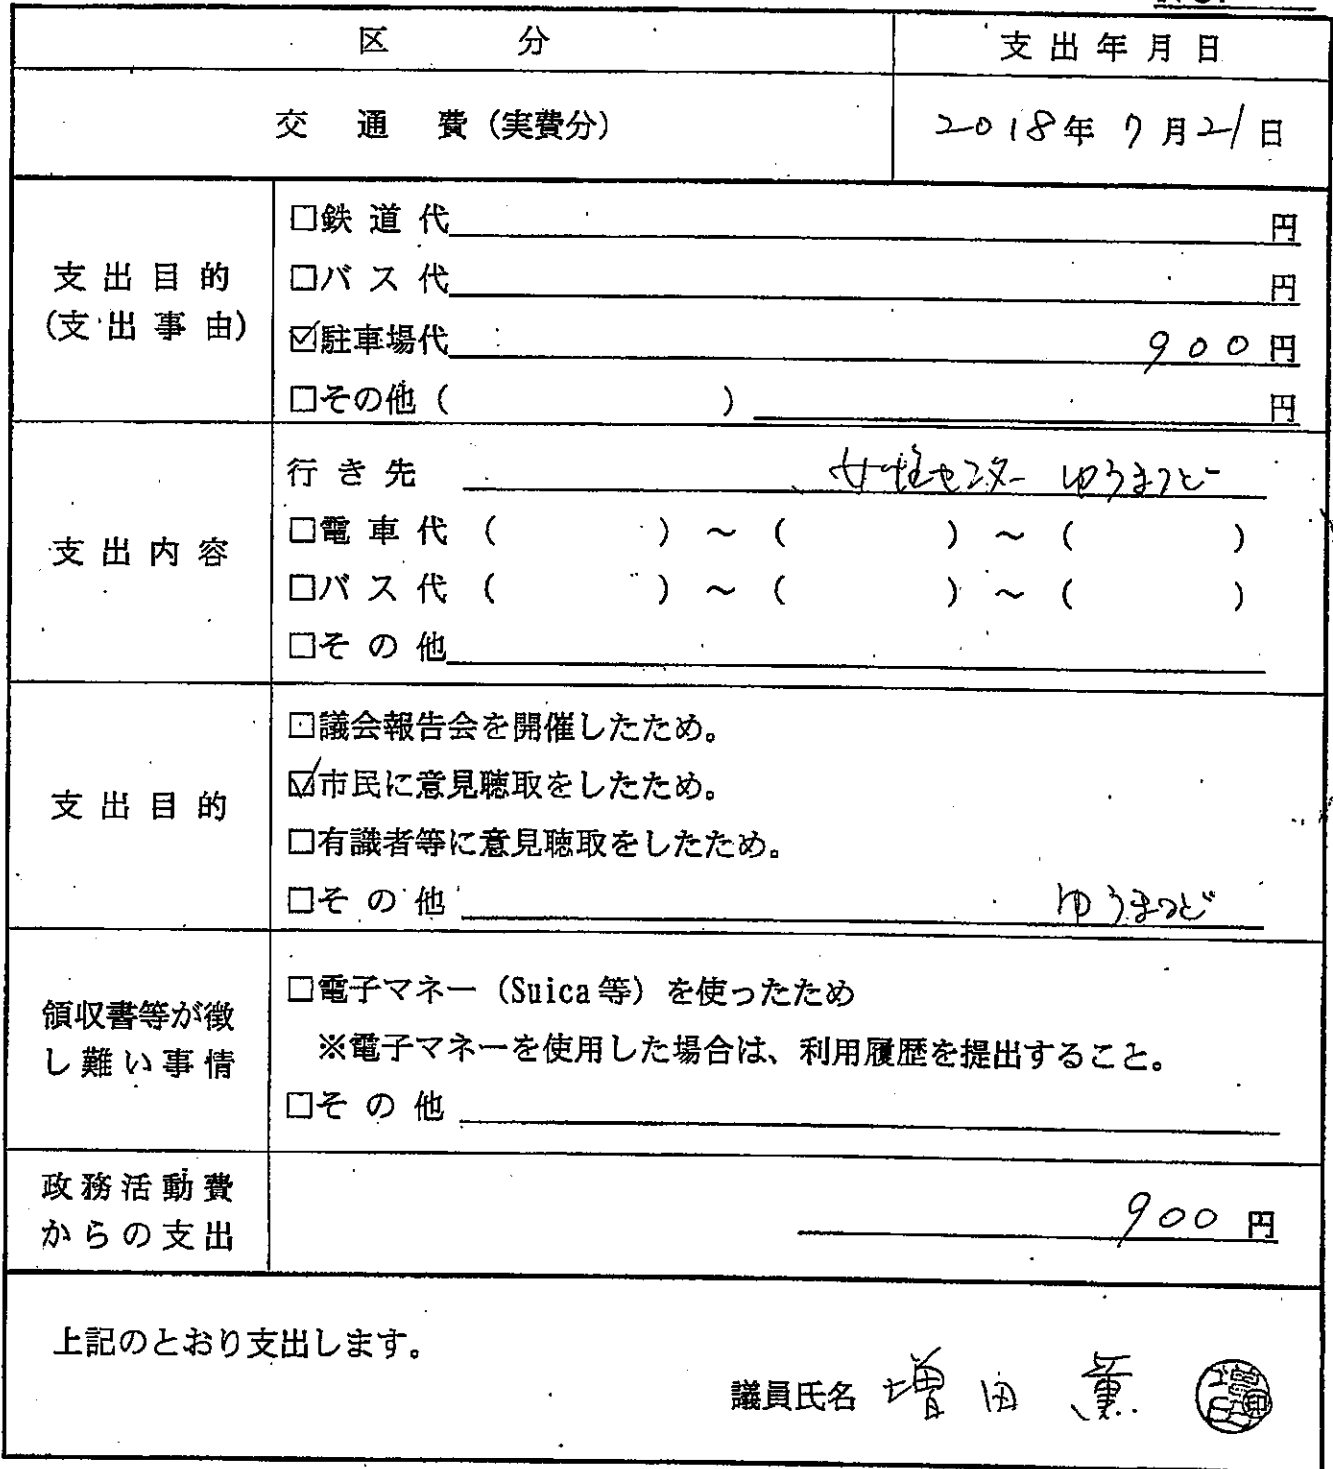 区 分 支出年月日
交通費（実費分） 2018年7月21日
支出目的
(支出事由)
□鉄道代 円
□バス代 円
☑駐車場代 900円
□その他（ ） 円
支出内容
行き先 女性センター ゆうまつど
□電車代（ ）～（ ）～（ ）
□バス代（ ）～（ ）～（ ）
□その他
支出目的
□議会報告会を開催したため。
☑市民に意見聴取をしたため。
□有識者等に意見聴取をしたため。
□その他 ゆうまつど
領収書等が徴
し難い事情
□電子マネー（Suica等）を使ったため
※電子マネーを使用した場合は、利用履歴を提出すること。
□その他
政務活動費
からの支出
900円
上記のとおり支出します。
議員氏名 増田 薫